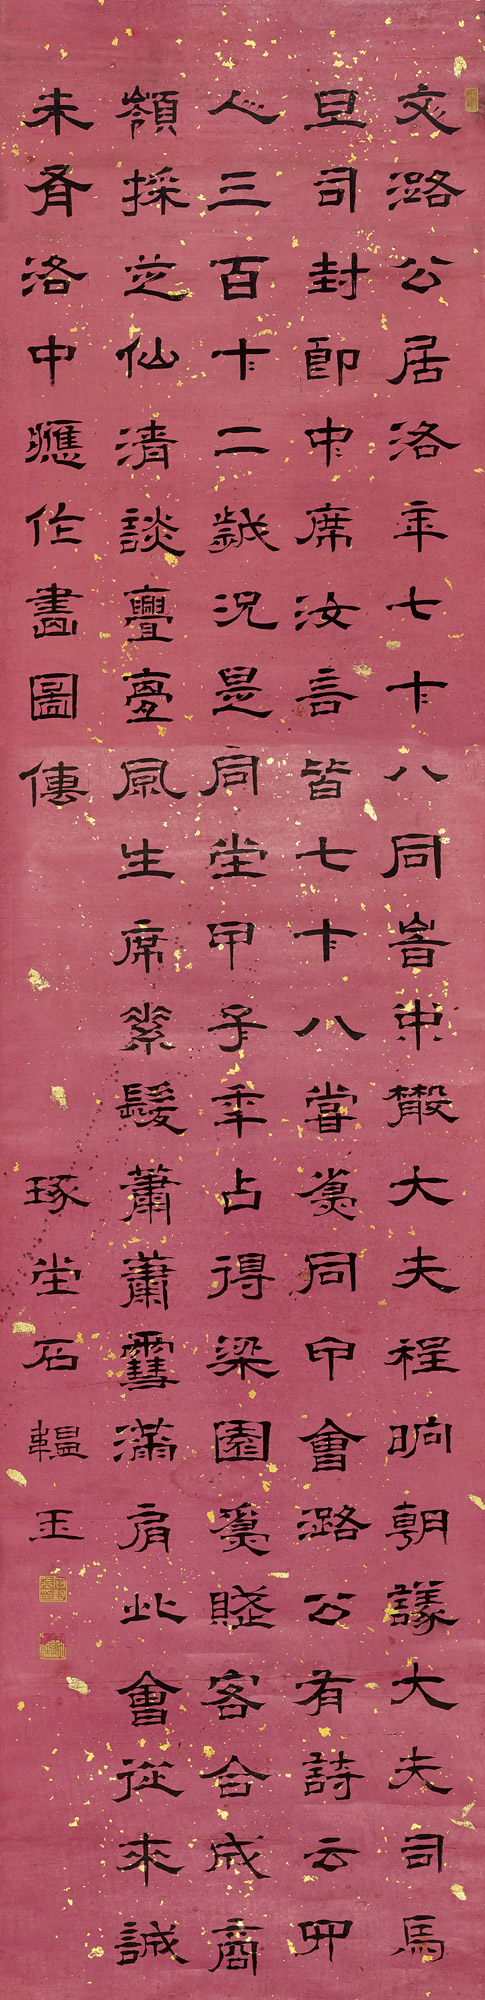 文潞公居洛年七十八同旹中散大夫程晌朝議大夫司馬
旦司封郎中席汝言皆七十八嘗為同甲會潞公有詩云四
人三百十二歲況是同坣甲子年占得梁園為賦客合成商
嶺採芝仙清談亹亹風生席素髮蕭蕭雪滿肩此會從來誠
未有洛中應作畫圖傳
琢坣石韞玉